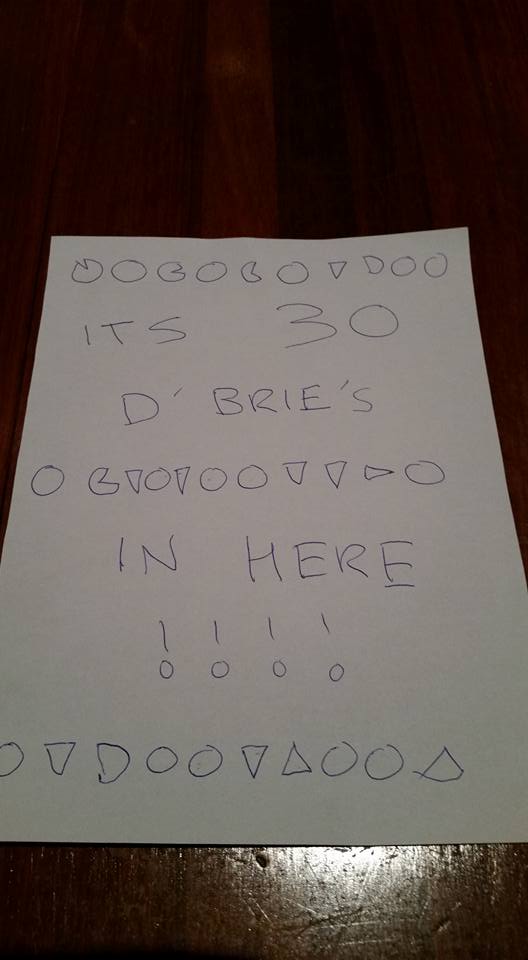 ITS 30
D'BRIE'S
IN HERE
!!!!